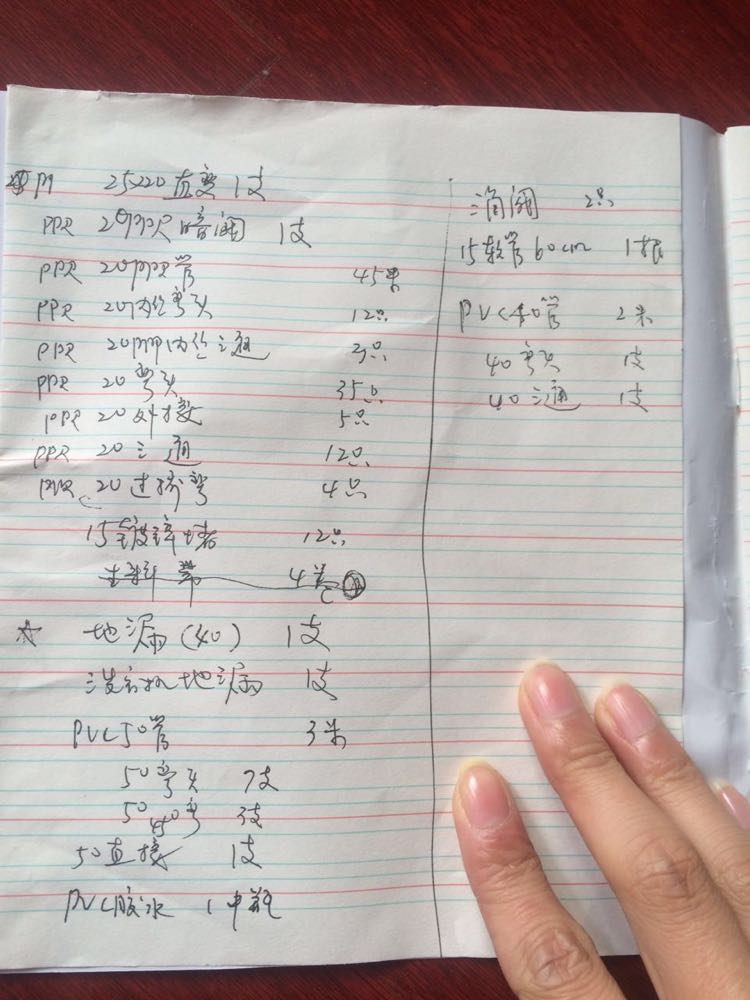 25x20直变 1支
PPR 20 暗阀 1支
PPR 20PPR管 45米
PPR 20内丝弯头 12只
PPR 20 内丝三通 3只
PPR 20弯头 35只
PPR 20外接 5只
PPR 20三通 12只
PPR 20过桥弯 4只
15镀锌堵 12只
生料带 4卷
地漏(40) 1支
洗衣机地漏 1支
PVC50管 3米
50弯头 7支
50 弯 3支
50直接 1支
PVC胶水 1中瓶
三角阀 2只
15软管60cm 1根
PVC40管 2米
40弯头 1支
40三通 1支